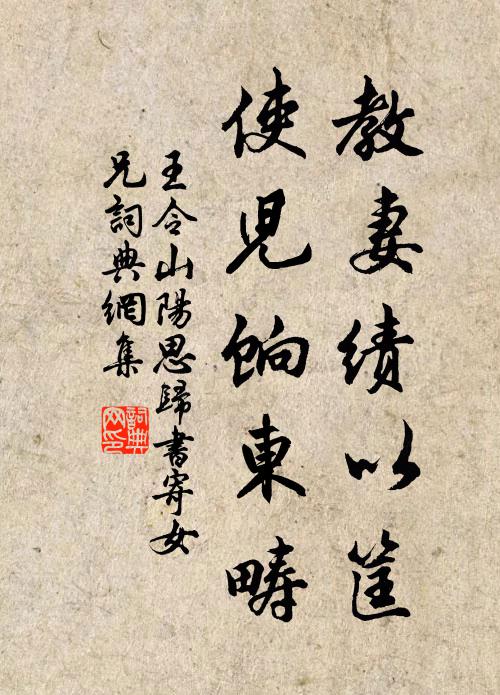 教妻績以筐
使児餉東疇
王令山陽思歸書寄女
兄詞典網集
詞典网印